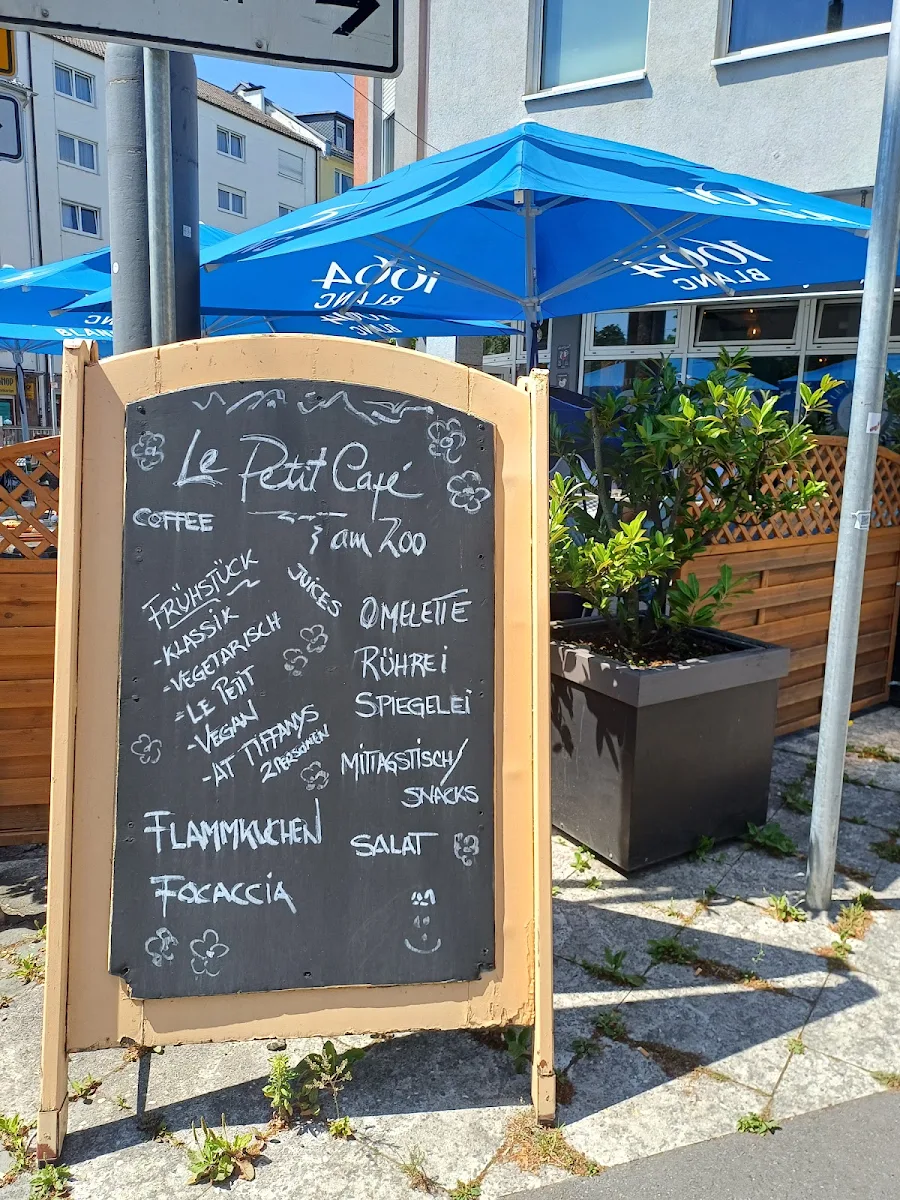 1664
BLANC
1664
BLANC
BLANC
Le Petit Café
am Zoo
COFFEE
JUICES
FRÜHSTÜCK
-KLASSIK
-VEGETARISCH
-LE PETIT
-VEGAN
-AT TIFFANYS
2 PERSONEN
FLAMMKUCHEN
FOCACCIA
OMELETTE
RÜHREi
SPIEGELEi
MITTAGSTISCH/
SNACKS
SALAT